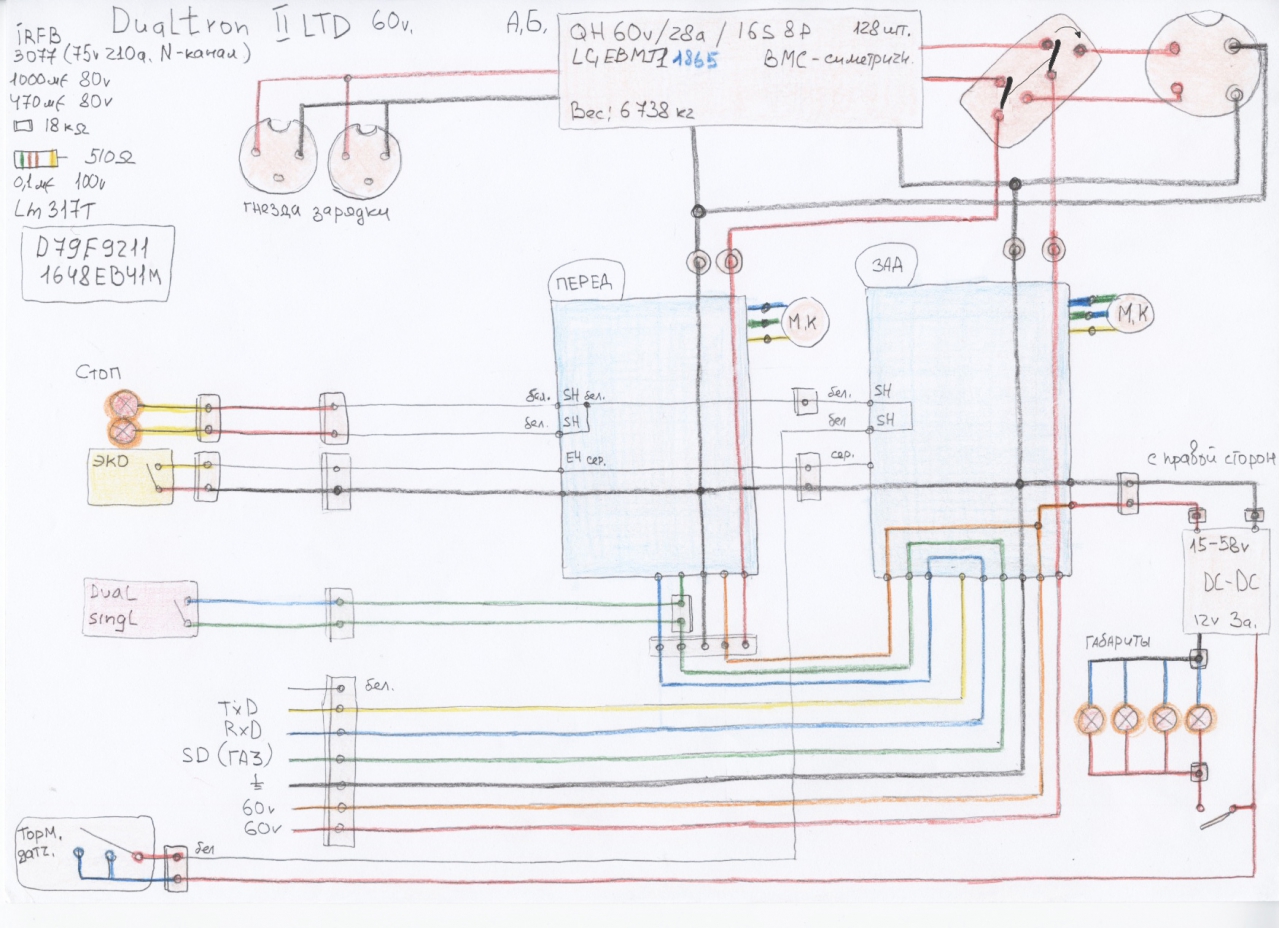 Dualtron II LTD 60v.
iRFB
3077 (75v 210a. N-канал)
1000мf 80v
470мf 80v
18кΩ
510Ω
0,1мf 100v
Lm 317T
D79F9211
1648EB41M
А,Б,
QH 60v/28a / 16S 8P 128шт.
1865 ВМС-симетричн.
Вес; 6738 кг
гнезда зарядки
ПЕРЕД
ЗАД
М,К
М,К
Стоп
бел. SH бел.
бел. SH
бел. SH
бел SH
ЭКО
E4 сер.
сер.
с правой сторон
15-58v
DC-DC
12v 3а.
Dual
singL
ГАБАРИТЫ
бел.
TxD
RxD
SD (ГАЗ)
60v
60v
Торм.
датч.
бел